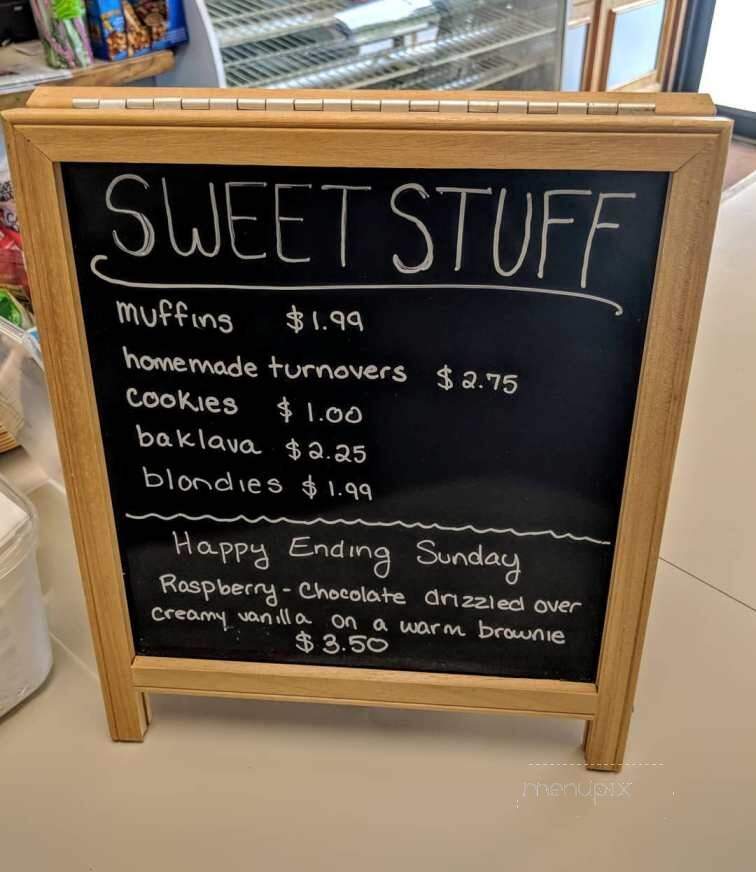 SWEET STUFF
muffins $1.99
homemade turnovers $2.75
cookies $1.00
baklava $2.25
blondies $1.99
Happy Ending Sunday
Raspberry-Chocolate drizzled over
creamy vanilla on a warm brownie
$3.50
menupix